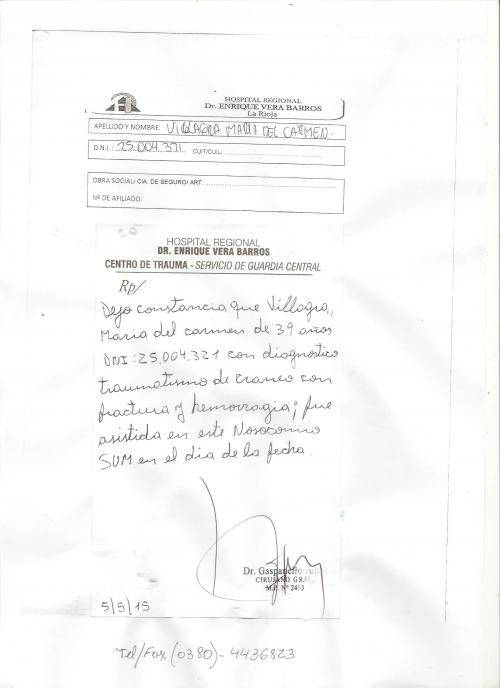 HOSPITAL REGIONAL
Dr. ENRIQUE VERA BARROS
La Rioja
APELLIDO Y NOMBRE: VILLAGRA MARIA DEL CARMEN.
D.N.I.: 25.004.321. CUIT/CUIL:
OBRA SOCIAL/ CIA. DE SEGURO/ ART:
Nº DE AFILIADO:
HOSPITAL REGIONAL
DR. ENRIQUE VERA BARROS
CENTRO DE TRAUMA - SERVICIO DE GUARDIA CENTRAL
Rp/
Dejo constancia que Villagra,
Maria del carmen de 39 años
DNI: 25.004.321 con diagnostico
traumatismo de craneo con
fractura y hemorragia; fue
asistida en este Nosocomio
SUM en el dia de la fecha.
Dr. Gaspanello
CIRUJANO GRAL.
M.P. Nº 2493
5/5/15
Tel/Fax (0380)-4436823